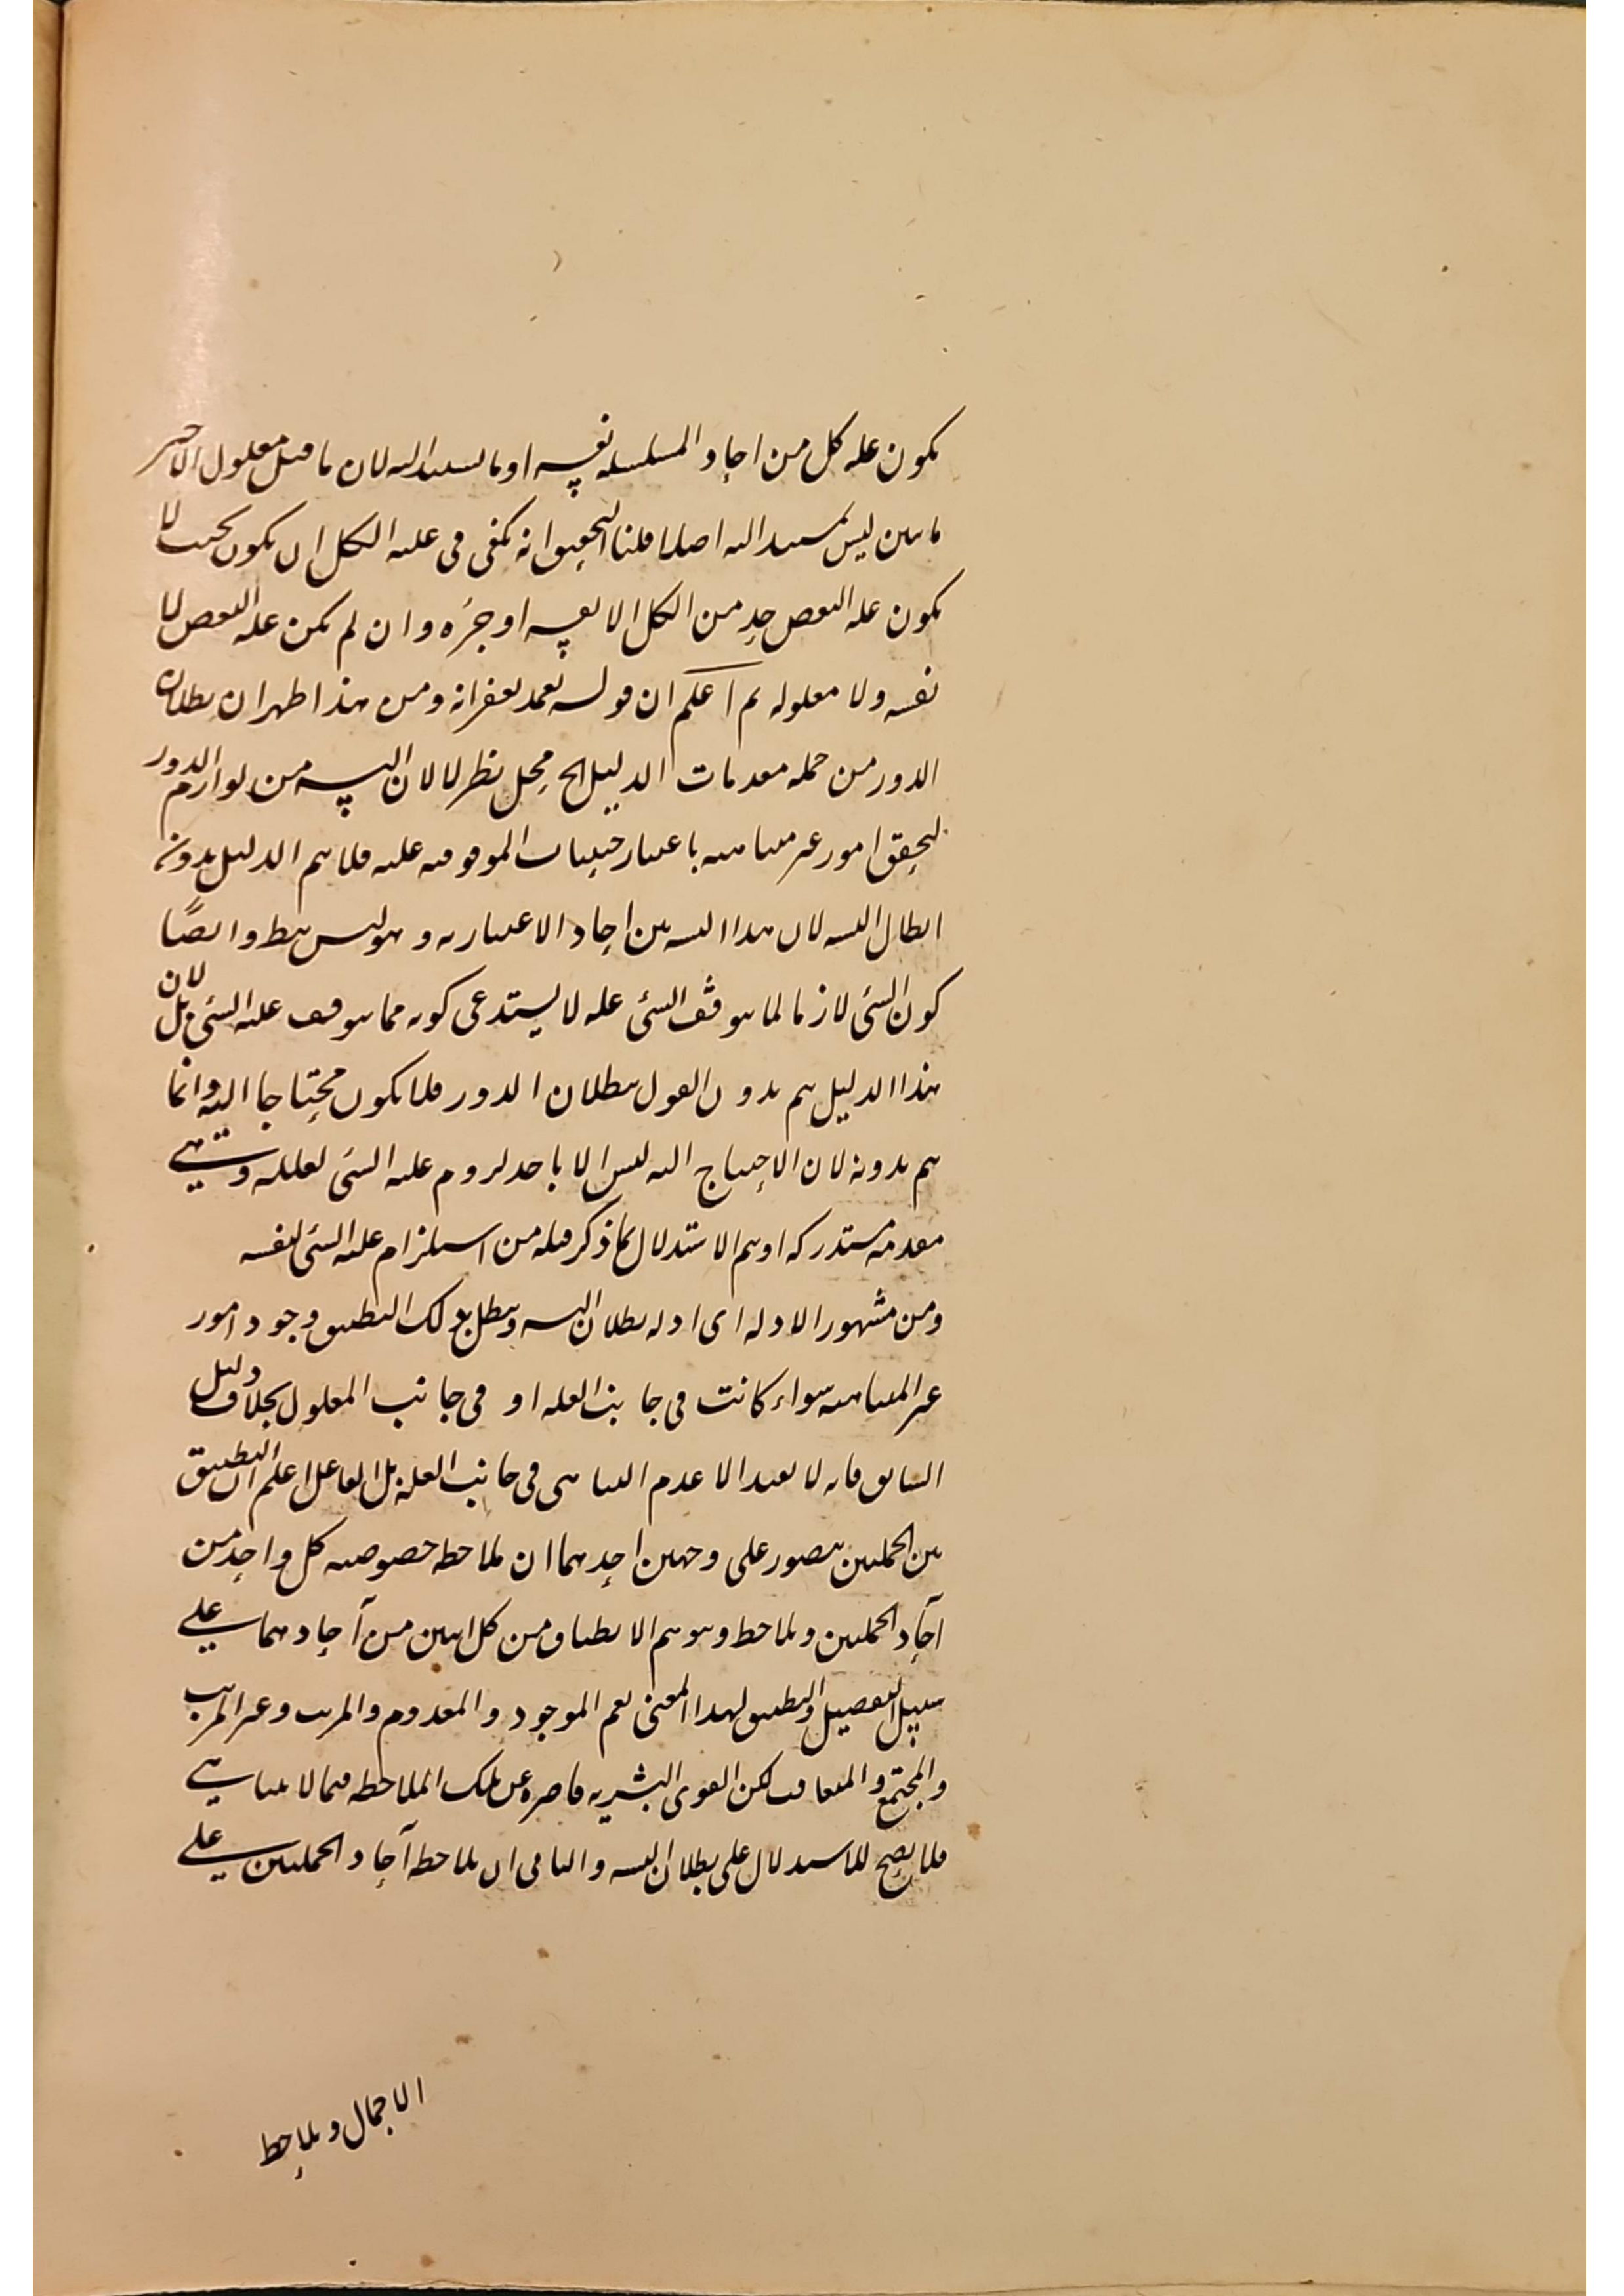 يكون علة كل من احاد السلسلة نفسه او ما يستند اليه لان ما قبل معلول الاخير
ما بين ليس بمستند اليه اصلا قلنا التحقيق انه يكفى فى علية الكل ان يكون بحيث لا
يكون علة البعض جزء من الكل الا نفسه او جزءه وان لم يكن علة البعض لا
نفسه ولا معلوله ثم اعلم ان قوله ومن هذا ظهر ان بطلان
الدور من جملة مقدمات الدليل الخ محل نظر لا لان التسه من لوازم الدور
لتحقق امور غير متناهية باعتبار حيثيات الموقوفية عليه فلا يتم الدليل بدونه
ابطال التسه لان هذا التسه من احاد الاعتبارية وهو ليس بط وايضًا
كون الشئ لازما لما يتوقف الشئ عليه لا يستدعى كونه مما يتوقف عليه الشئ بل لان
هذا الدليل يتم بدون القول ببطلان الدور فلا يكون محتاجا اليه وانما
يتم بدونه لان الاحتياج اليه ليس الا باخذ لزوم علية الشئ لعلله وهى
مقدمة مستدركة او يتم الاستدلال بما ذكر قبله من استلزام علية الشئ لنفسه
ومن مشهور الادلة اى ادلة بطلان التسه ويبطل بذلك التطبيق وجود امور
غير المتناهية سواء كانت فى جانب العلة او فى جانب المعلول بخلاف دليل
السابق فانه لا يفيد الا عدم التناهى فى جانب العلة بل الفاعل اعلم ان التطبيق
بين الجملتين يتصور على وجهين احدهما ان يلاحظ خصوصية كل واحد من
آحاد الجملتين ويلاحظ ويتوهم الانطباق من كل اثنين من آحادهما على
سبيل التفصيل والتطبيق لهذا المعنى يعم الموجود والمعدوم والمرتب وغير المرتب
والمجتمع والمتعاقب لكن القوى البشرية قاصرة عن تلك الملاحظة فيما لا يتناهى
فلا يصح للاستدلال على بطلان التسه والثانى ان يلاحظ آحاد الجملتين على
الاجمال ويلاحظ